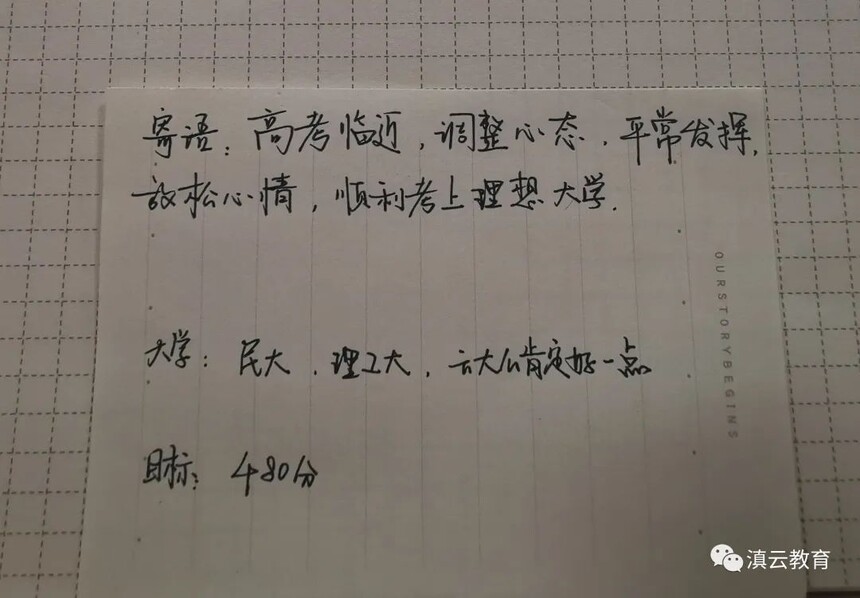 寄语：高考临近，调整心态，平常发挥，
放松心情，顺利考上理想大学.
大学：民大、理工大，云大肯定好一点
目标：480分
OURSTORYBEGINS
滇云教育